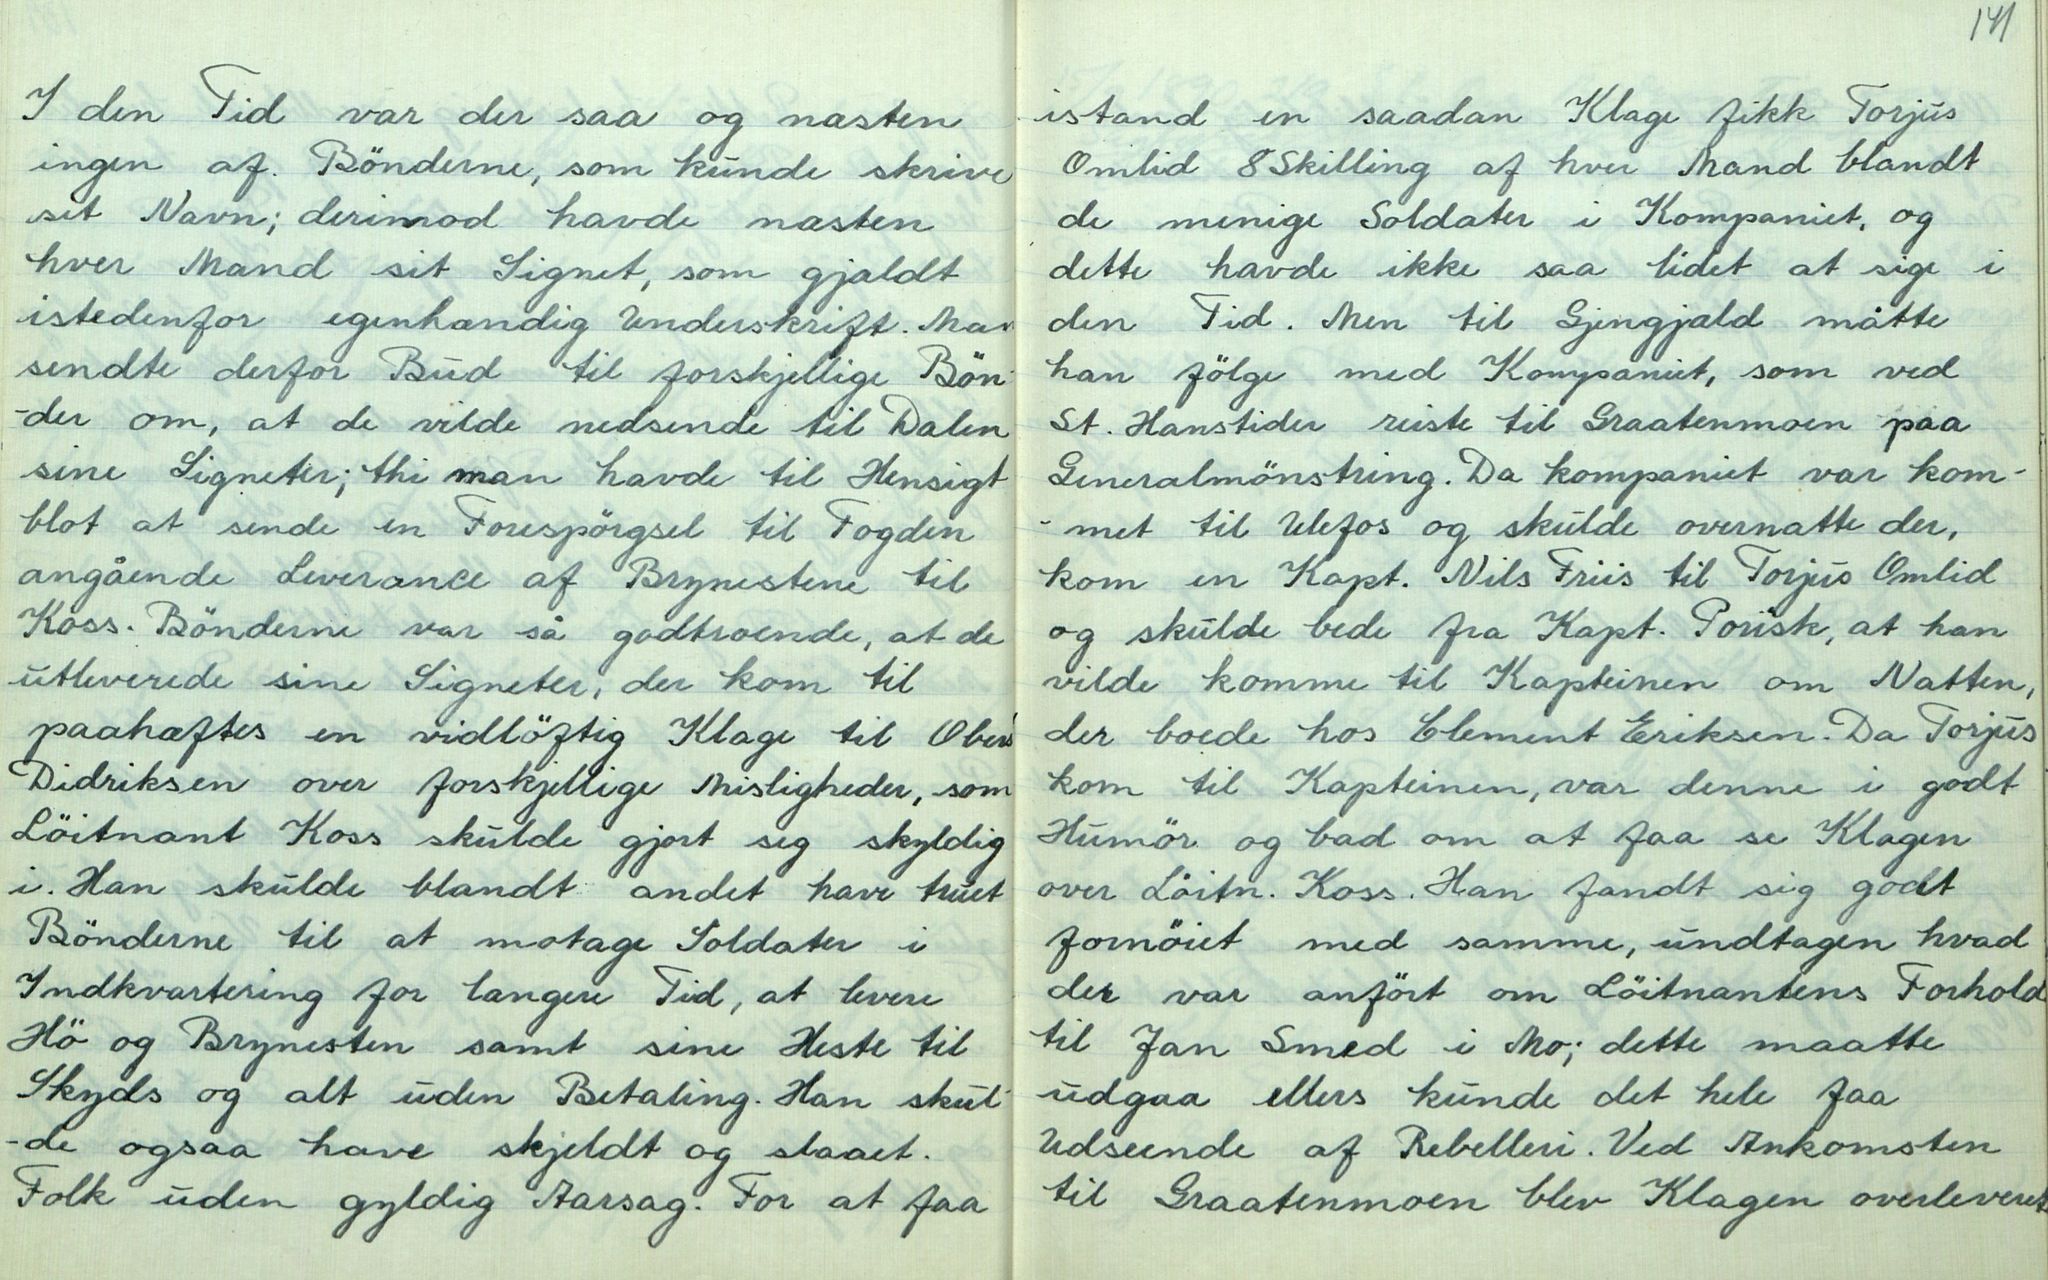 I den Tid var der saa og næsten
ingen af. Bönderne, som kunde skrive
sit Navn; derimod havde næsten
hver Mand sit Signet, som gjaldt
istedenfor egenhændig Underskrift. Man
sendte derfor Bud til forskjellige Bön-
-der om, at de vilde nedsende til Dalen
sine Signeter; thi man havde til Hensigt
blot at sende en Forespörgsel til Fogden
angående Leverance af Brynestene til
Koss. Bönderne var så godtroende, at de
utleverede sine Signeter, der kom til
paahæftes en vidlöftig Klage til Oberst
Didriksen over forskjellige Misligheder, som
Löitnant Koss skulde gjort seg skyldig
i. Han skulde blandt andet have truet
Bönderne til at motage Soldater i
Indkvartering for længere Tid, at levere
Hö og Brynesten samt sine Heste til
Skyds og alt uden Betaling. Han skul-
-de ogsaa have skjeldt og slaaet.
Folk uden gyldig Aarsag. For at faa
141
istand en saadan Klage fikk Torjus
Omlid 8 Skilling af hver Mand blandt
de menige Soldater i Kompaniet, og
dette havde ikke saa lidet at sige i
den Tid. Men til Gjengjæld måtte
han fölge med Kompaniet, som ved
St. Hanstider reiste til Graatenmoen paa
Generalmönstring. Da kompaniet var kom-
-met til Ulefos og skulde overnatte der,
kom en Kapt. Nils Friis til Torjus Omlid
og skulde bede fra Kapt. Poüsk, at han
vilde komme til Kapteinen om Natten,
der boede hos Clement Eriksen. Da Torjus
kom til Kapteinen, var denne i godt
Humör og bad om at faa se Klagen
over Löitn. Koss. Han fandt sig godt
fornöiet med samme, undtagen hvad
der var anfört om Löitnantens Forhold
til Jan Smed i Mo; dette maatte
udgaa ellers kunde det hele faa
Udseende af Rebelleri. Ved Ankomsten
til Graatenmoen blev Klagen overleveret